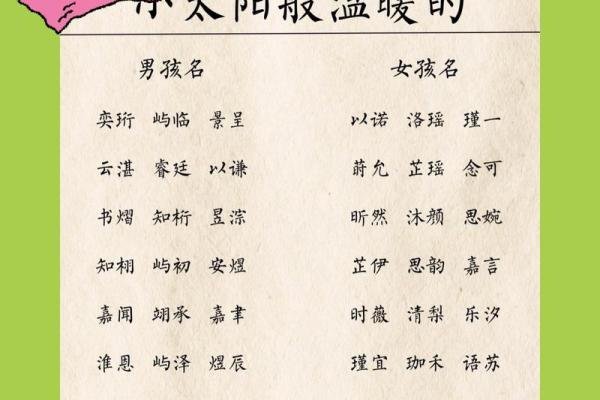 小太阳般温暖的
男孩名 女孩名
奕珩 屿临 景呈 以诺 洛瑶 瑾一
云湛 睿廷 以谦 蒔允 芷瑶 念可
书熠 知桁 昱淙 昕然 沐颜 思婉
知栩 屿初 安煜 芷伊 思韵 嘉言
嘉闻 翊承 嘉聿 时薇 清梨 乐汐
淮恩 屿泽 煜辰 瑾宜 珈禾 语苏